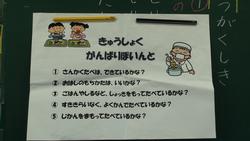 きゅうしょく
がんばりぽいんと
① さんかくたべは、できているかな?
② おはしのもちかたは、いいかな?
③ ごはんやしるなど、しょっきをもってたべているかな?
④ すききらいなく、よくかんでたべているかな?
⑤ じかんをまもってたべているかな?
つがくしき